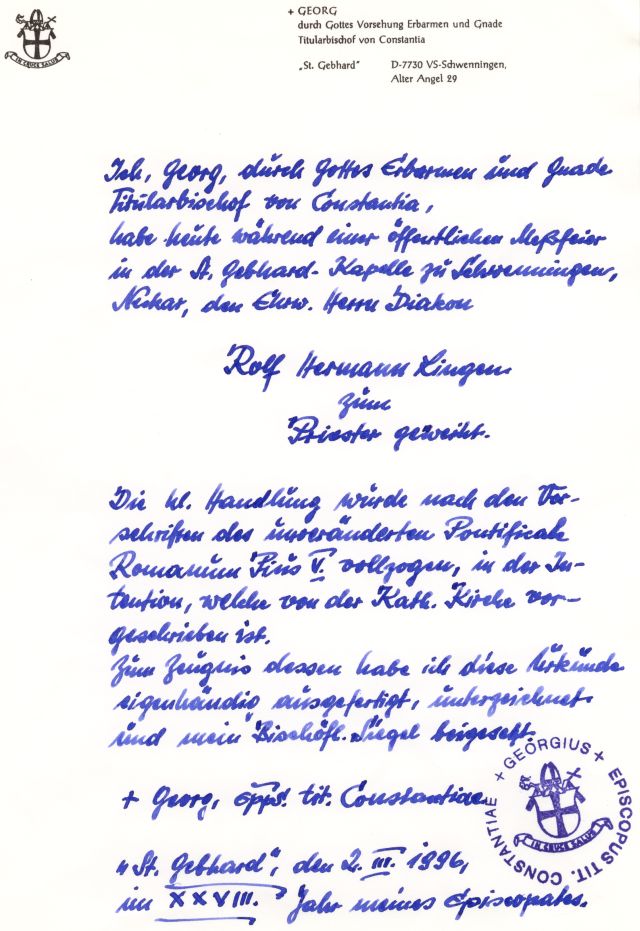 + GEORG
durch Gottes Vorsehung Erbarmen und Gnade
Titularbischof von Constantia
„St. Gebhard" D-7730 VS-Schwenningen,
Alter Angel 29
IN CRUCE SALUS
Ich, Georg, durch Gottes Erbarmen und Gnade
Titularbischof von Constantia,
habe heute während einer öffentlichen Meßfeier
in der St. Gebhard-Kapelle zu Schwenningen,
Neckar, den Ehrw. Herrn Diakon
Rolf Hermann Lingen
zum
Priester geweiht.
Die hl. Handlung wurde nach den Vor-
schriften des unveränderten Pontificale
Romanum Pius V. vollzogen, in der In-
tention, welche von der Kath. Kirche vor-
geschrieben ist.
Zum Zeugnis dessen habe ich diese Urkunde
eigenhändig ausgefertigt, unterzeichnet
und mein Bischöfl. Siegel beigesetzt.
+ Georg, Epps. tit. Constantiae
+ GEORGIUS + EPISCOPUS TIT. CONSTANTIAE
IN CRUCE SALUS
„St. Gebhard", den 2. III. 1996,
im XXVIII. Jahr meines Episcopates.